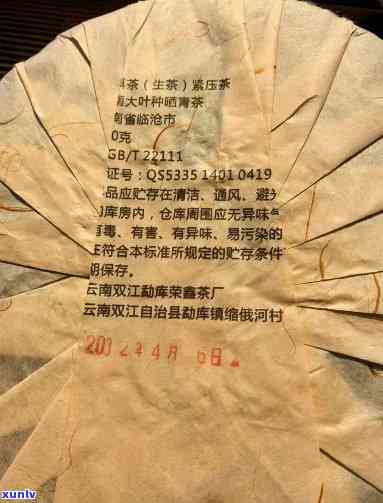 茶（生茶）紧压茶
大叶种晒青茶
省临沧市
0克
GB/T 22111
证号：QS5335 1401 0419
品应贮存在清洁、通风、避
库房内，仓库周围应无异味
毒、有害、有异味、易污染的
符合本标准所规定的贮存条件
保存。
云南双江勐库荣鑫茶厂
云南双江自治县勐库镇缩俄河村
4月 6日
xunlv